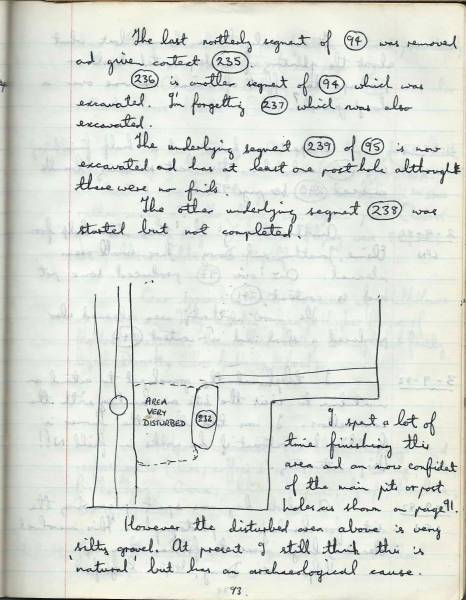 The last northerly segment of (94) was removed
and given context (235).
(236) is another segment of (94) which was
excavated. I'm forgetting (237) which was also
excavated.
The underlying segment (239) of (95) is now
excavated and has at least one post hole although
there were no finds.
The other underlying segment (238) was
started but not completed.
AREA
VERY
DISTURBED
232
I spent a lot of
time finishing this
area and am now confident
of the main pits or post
holes as shown on page 91.
However the disturbed area above is very
silty gravel. At present I still think this is
'natural' but has an archaeological cause.
93.